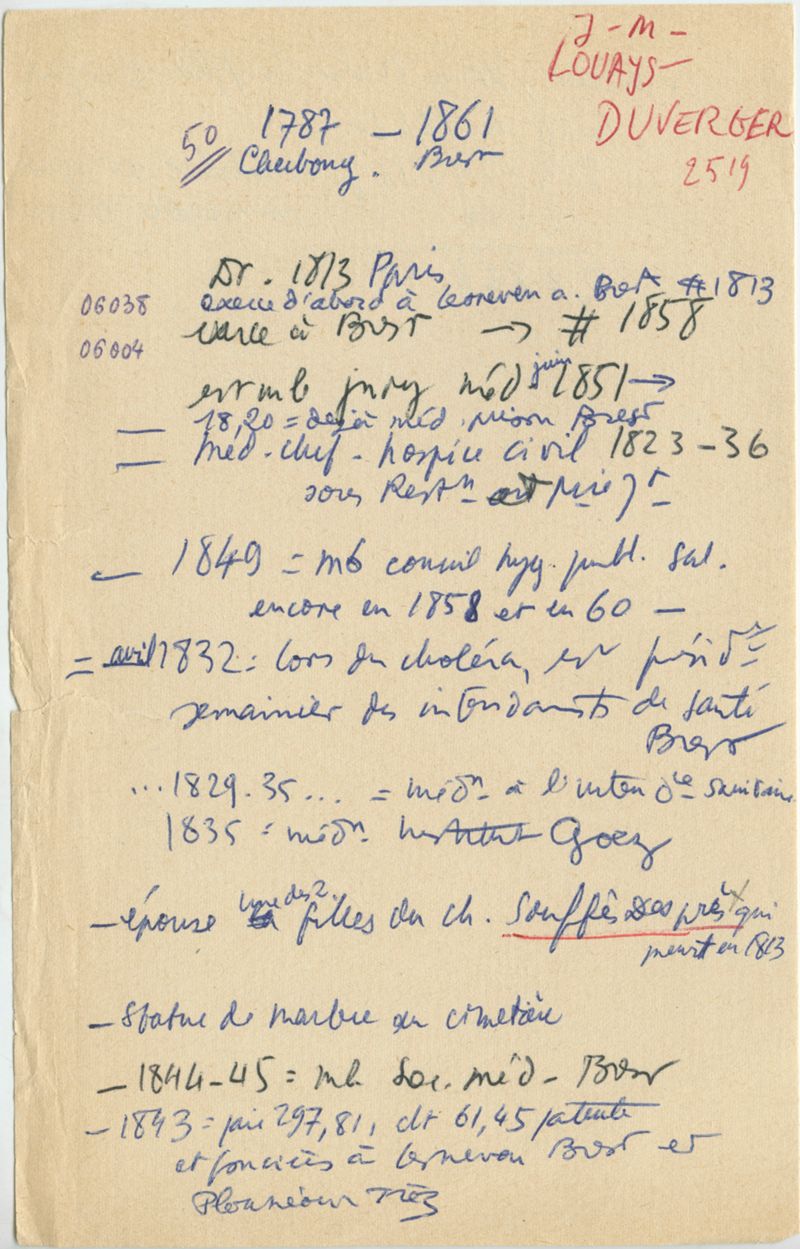 J-M-
LOUAYS-
DUVERGER
2519
50
1787 - 1861
Cherbourg. Brest
Dr. 1813 Paris
06038 exerce d'abord à Lesneven a. Brest # 1813
06004 exerce à Brest → # 1858
est mb jury méd juin 1851 →
1820 = déjà méd. prison Brest
Méd-chef- hospice civil 1823-36
sous Restn et
- 1849 = mb conseil hyg. publ. sal.
encore en 1858 et en 60 -
= avril 1832 = lors du choléra, est présidt
semainier des intendants de santé
Brest
...1829.35... = médn à l'intendce sanitaire
1835 = médn Goez
- épouse l'une des 2 filles du ch. Souffès Desprès qui
meurt en 1813
- Statue de marbre au cimetière
- 1844-45 = mb Soc. méd- Brest
- 1843 = paie 297,81, dt 61,45 patente
et foncières à Lesneven Brest et
Plounéour Trez